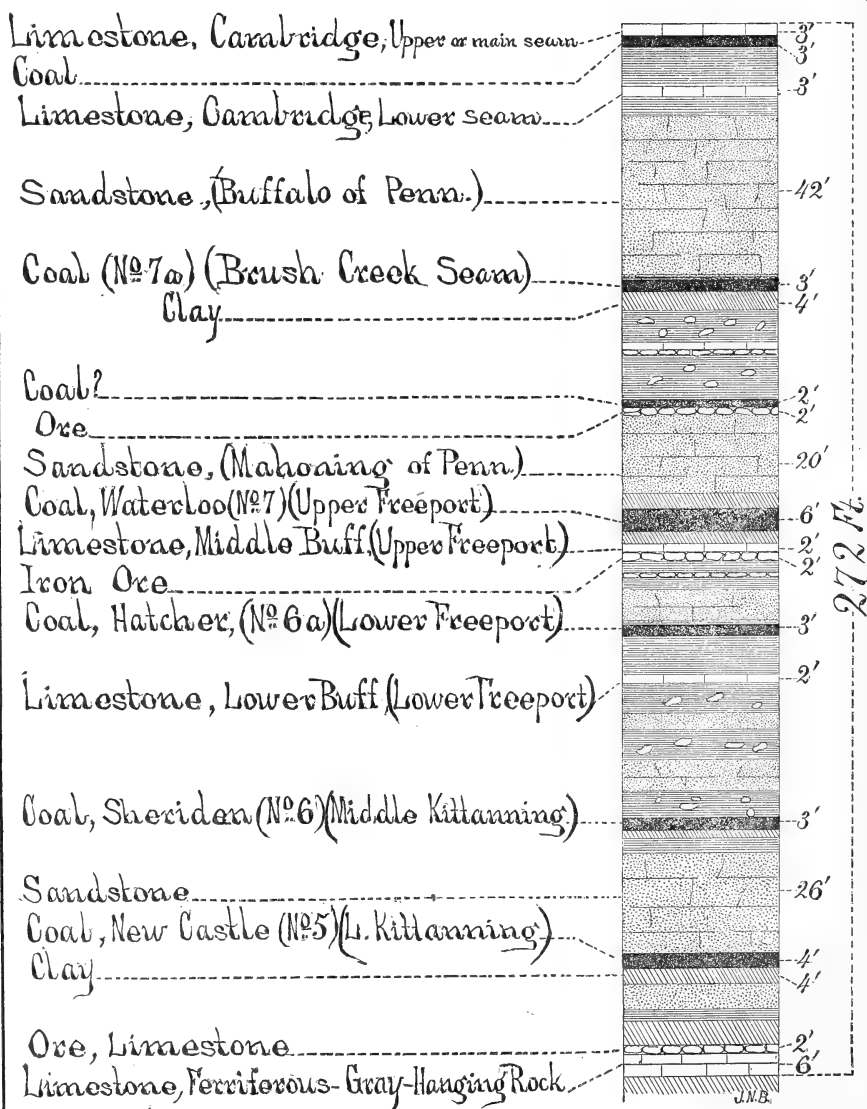 Limestone, Cambridge, Upper or main seam 3'
Coal 3'
Limestone, Cambridge, Lower seam 3'
Sandstone, (Buffalo of Penn.) 42'
Coal (No. 7a) (Brush Creek Seam) 3'
Clay 4'
Coal? 2'
Ore 2'
Sandstone, (Mahoning of Penn.) 20'
Coal, Waterloo (No. 7) (Upper Freeport) 6'
Limestone, Middle Buff, (Upper Freeport) 2'
Iron Ore 2'
Coal, Hatcher, (No. 6a) (Lower Freeport) 3'
Limestone, Lower Buff (Lower Freeport) 2'
Coal, Sheriden (No. 6) (Middle Kittanning) 3'
Sandstone 26'
Coal, New Castle (No. 5) (L. Kittanning) 4'
Clay 4'
Ore, Limestone 2'
Limestone, Ferriferous-Gray-Hanging Rock 6'
272 Ft.
J.N.B.